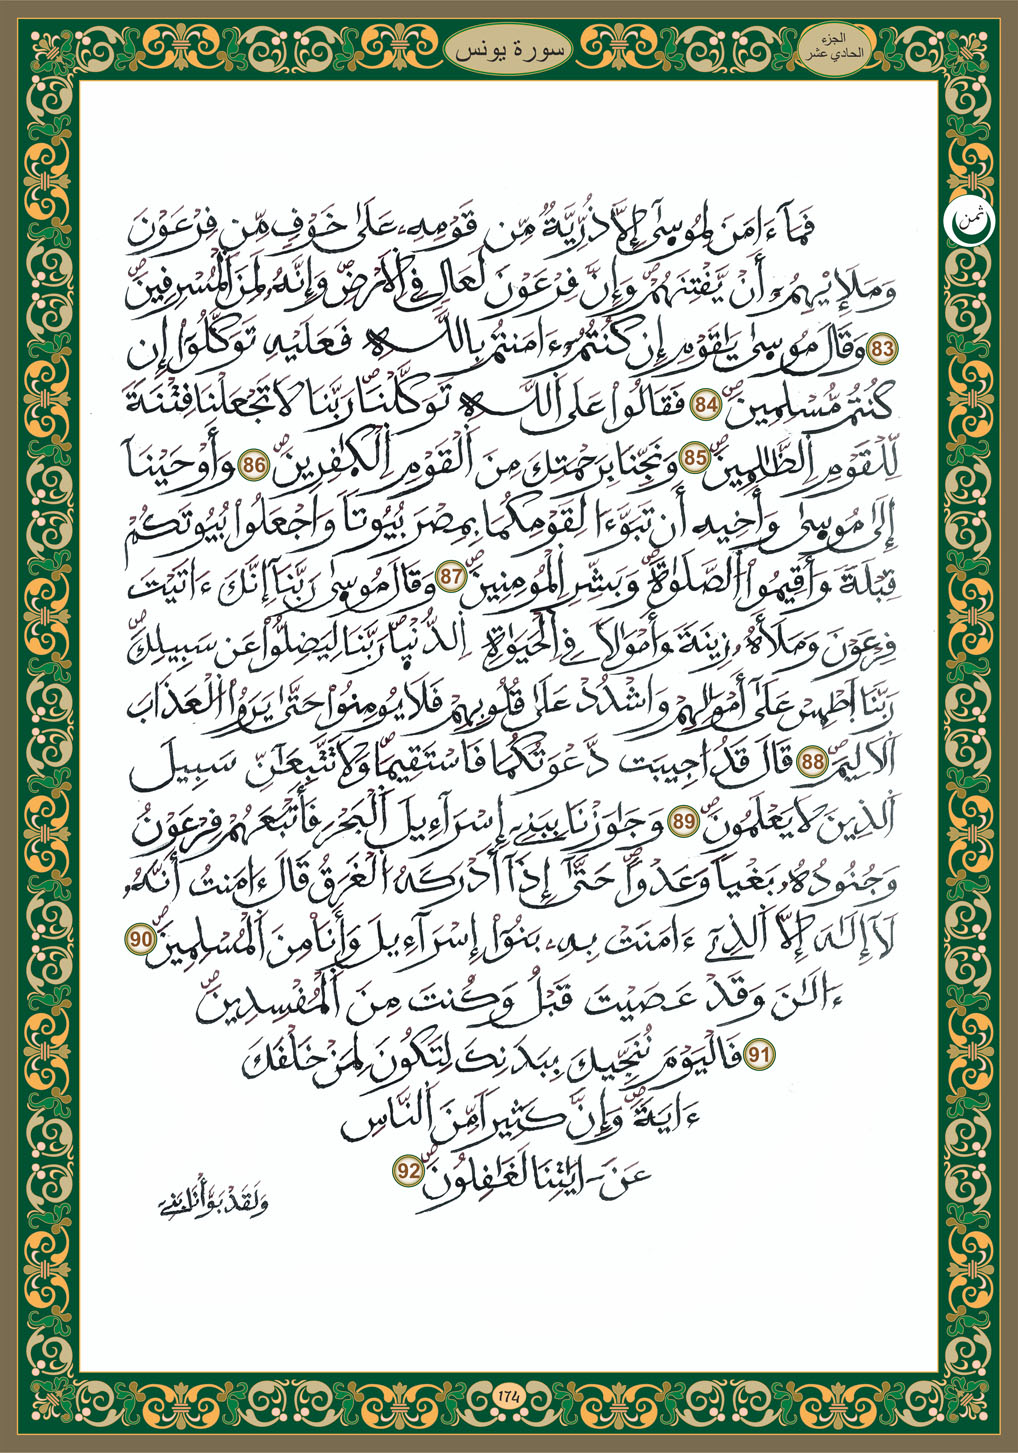 سورة يونس
الجزء
الحادي عشر
ثمن
فَمَآ ءَامَنَ لِمُوسَىٰٓ إِلَّا ذُرِّيَّةٞ مِّن قَوْمِهِۦ عَلَىٰ خَوْفٖ مِّن فِرْعَوْنَ
وَمَلَإِيْهِمُۥٓ أَنْ يَّفْتِنَهُمْۖ وَإِنَّ فِرْعَوْنَ لَعَالٖ فِے اِلَارْضِۖ وَإِنَّهُۥ لَمِنَ اَلْمُسْرِفِينَۖ
83 وَقَالَ مُوسَىٰ يَٰقَوْمِ إِن كُنتُمُۥٓ ءَامَنتُم بِاللَّهِ فَعَلَيْهِ تَوَكَّلُوٓاْ إِن
كُنتُم مُّسْلِمِينَۖ 84 فَقَالُواْ عَلَى اَللَّهِ تَوَكَّلْنَاۖ رَبَّنَا لَا تَجْعَلْنَا فِتْنَةٗ
لِّلْقَوْمِ اِلظَّٰلِمِينَۖ 85 وَنَجِّنَا بِرَحْمَتِكَ مِنَ اَلْقَوْمِ اِلْكٰفِرِينَۖ 86 وَأَوْحَيْنَآ
إِلَىٰ مُوسَىٰ وَأَخِيهِ أَن تَبَوَّءَا لِقَوْمِكُمَا بِمِصْرَ بُيُوتاٗ وَاجْعَلُواْ بُيُوتَكُمْ
قِبْلَةٗ وَأَقِيمُواْ اُلصَّلَوٰةَۖ وَبَشِّرِ اِلْمُومِنِينَۖ 87 وَقَالَ مُوسَىٰ رَبَّنَآ إِنَّكَ ءَاتَيْتَ
فِرْعَوْنَ وَمَلَأَهُۥ زِينَةٗ وَأَمْوَٰلاٗ فِے اِلْحَيَوٰةِ اِلدُّنْيَا رَبَّنَا لِيَضِلُّواْ عَن سَبِيلِكَۖ
رَبَّنَا اَطْمِسْ عَلَىٰٓ أَمْوَٰلِهِمْ وَاشْدُدْ عَلَىٰ قُلُوبِهِمْ فَلَا يُومِنُواْ حَتَّىٰ يَرَوُاْ اُلْعَذَابَ
اَلَالِيمَۖ 88 قَالَ قَدُ ا۟جِيبَت دَّعْوَتُكُمَا فَاسْتَقِيمَاۖ وَلَا تَتَّبِعَآنِّ سَبِيلَ
اَلذِينَ لَا يَعْلَمُونَۖ 89 وَجَٰوَزْنَا بِبَنِےٓ إِسْرَآءِيلَ اَلْبَحْرَ فَأَتْبَعَهُمْ فِرْعَوْنُ
وَجُنُودُهُۥ بَغْياٗ وَعَدْواًۖ حَتَّىٰٓ إِذَآ أَدْرَكَهُ اُلْغَرَقُ قَالَ ءَامَنتُ أَنَّهُۥ
لَآ إِلَٰهَ إِلَّا اَلذِےٓ ءَامَنَتْ بِهِۦ بَنُوٓاْ إِسْرَآءِيلَ وَأَنَا مِنَ اَلْمُسْلِمِينَۖ 90
ءَآلَٰنَ وَقَدْ عَصَيْتَ قَبْلُ وَكُنتَ مِنَ اَلْمُفْسِدِينَۖ
91 فَالْيَوْمَ نُنَجِّيكَ بِبَدَنِكَ لِتَكُونَ لِمَنْ خَلْفَكَ
ءَايَةٗۖ وَإِنَّ كَثِيراٗ مِّنَ اَلنَّاسِ
عَنَ ـ ايَٰتِنَا لَغَٰفِلُونَۖ 92
وَلَقَدْ بَوَّأْنَا بَنِے
174